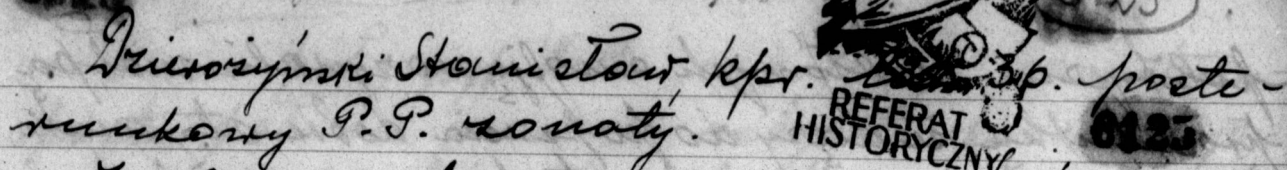 Dzierożyński Stanisław, kpr. 36. poste-
runkowy P.P. żonaty.
REFERAT
HISTORYCZNY
6123